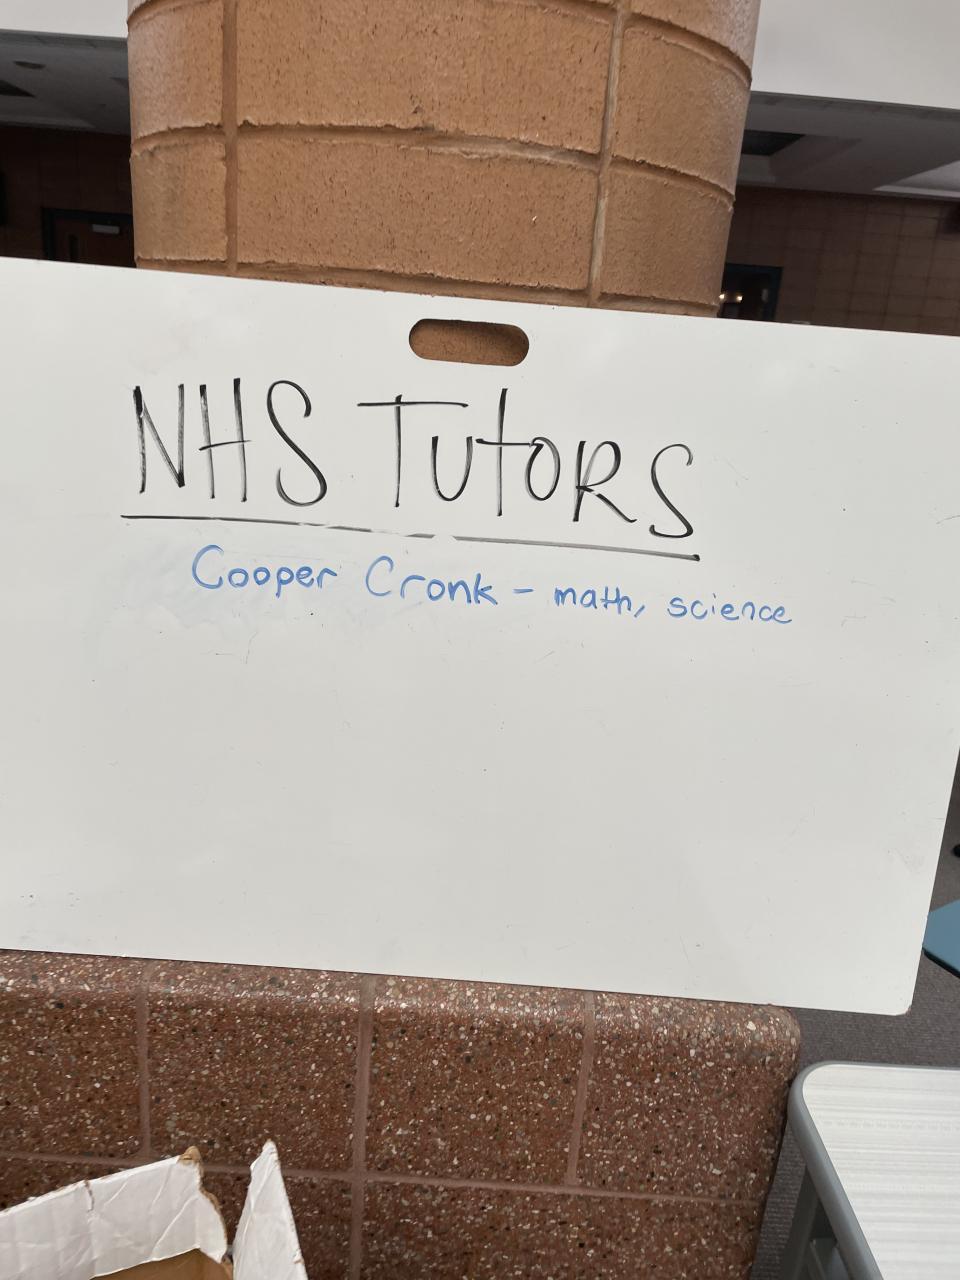 NHS Tutors
Cooper Cronk - math, science